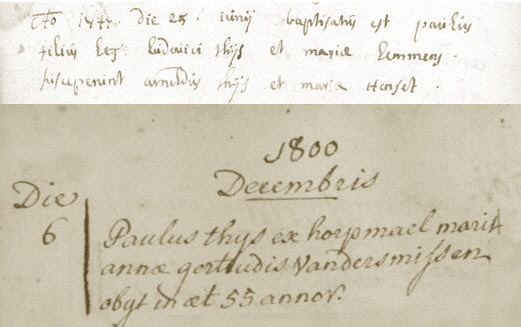 Ao 1745 die 25 iunij baptisatus est paulus
filius leg: ludovici thijs et mariæ lemmens.
susceperunt arnoldus thijs et maria Henset.
1800
Decembris
Die
6 Paulus thys ex horpmael marit
annæ gertrudis Vandersmissen
obyt in æt 55 annor.